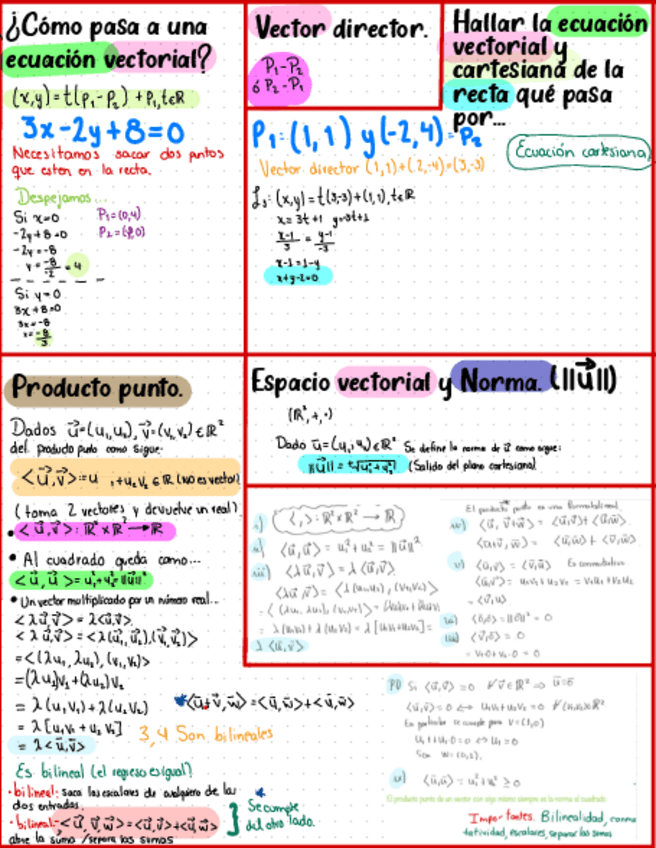 ¿Cómo pasa a una
ecuación vectorial?
(x,y)=t(p₁-p₂)+p₁,t∈R
3x-2y+8=0
Necesitamos sacar dos puntos
que esten en la recta.
Despejamos...
Si x=0
P₁=(0,4)
-2y+8=0
-2y=-8
y=-8/-2=4
Si y=0
3x+8=0
3x=-8
x=-8/3
Vector director.
P₁-P₂
ó P₂-P₁
Hallar la ecuación
vectorial y
cartesiana de la
recta qué pasa
por...
P₁:(1,1) y (-2,4)=P₂
Ecuación cartesiana
Vector director (1,1)+(2,-4)=(3,-3)
(x,y)=t(3,-3)+(1,1),t∈R
x=3t+1
x-1/3 = y-1/-3
x-1=1-y
x+y-2=0
Producto punto.
Dados u⃗=(u₁,u₂), v⃗=(v₁,v₂)∈ℝ²
del producto punto como sigue:
<u⃗,v⃗>=u ₁+u₂v₂∈ℝ (no es vector)
(toma 2 vectores y devuelve un real)
• <u⃗,v⃗>:ℝ²×ℝ²→ℝ
• Al cuadrado queda como...
<u⃗,u⃗>=u₁²+u₂²=||u⃗||²
• Un vector multiplicado por un número real...
<λu⃗,v⃗>=λ<u⃗,v⃗>
<λu⃗,v⃗>=<λ(u₁,u₂),(v₁,v₂)>
=<(λu₁,λu₂),(v₁,v₂)>
=(λu₁)v₁+(λu₂)v₂
=λ(u₁v₁)+λ(u₂v₂)
=λ[u₁v₁+u₂v₂]
=λ<u⃗,v⃗>
*<u⃗+v⃗,w⃗>=<u⃗,w⃗>+<v⃗,w⃗>
3,4 Son bilineales
Es bilineal (el regreso es igual?)
• bilineal: saca los escalares de cualquiera de las
dos entradas.
• bilineal:<u⃗,v⃗+w⃗>=<u⃗,v⃗>+<u⃗,w⃗>
abre la suma /separa las sumas
Se cumple
del otro lado.
Espacio vectorial y Norma. (||u⃗||)
(ℝ²,+,·)
Dado u⃗=(u₁,u₂)∈ℝ² Se define la norma de u⃗ como sigue:
||u⃗||=√u₁²+u₂² (Salido del plano cartesiano)
i) <,>:ℝ²×ℝ²→ℝ
ii) <u⃗,u⃗>=u₁²+u₂²=||u⃗||²
iii) <λu⃗,v⃗>=λ<u⃗,v⃗>
<λu⃗,v⃗>=<λ(u₁,u₂),(v₁,v₂)>
=λ(u₁v₁)+λ(u₂v₂)=λ[u₁v₁+u₂v₂]=
λ<u⃗,v⃗>
El producto punto es una forma bilineal
iv) <u⃗,v⃗+w⃗>=<u⃗,v⃗>+<u⃗,w⃗>
<u⃗+v⃗,w⃗>=<u⃗,w⃗>+<v⃗,w⃗>
v) <u⃗,v⃗>=<v⃗,u⃗> Es conmutativo
<u⃗,v⃗>=u₁v₁+u₂v₂=v₁u₁+v₂u₂
=<v⃗,u⃗>
<0⃗,0⃗>=||0⃗||²=0
<v⃗,0⃗>=0
=v₁0+v₂0=0
PD Si <u⃗,v⃗>=0 ∀v⃗∈ℝ²⇒u⃗=0⃗
<u⃗,v⃗>=0⇔u₁v₁+u₂v₂=0 ∀(v₁,v₂)∈ℝ²
En particular se cumple para v=(1,0)
u₁1+u₂0=0⇔u₁=0
Sea w=(0,1).
<u⃗,u⃗>=u₁²+u₂²≥0
El producto punto de un vector con sigo mismo siempre es la norma al cuadrado
Importantes. Bilinealidad, conmu
tatividad, escalares, separar las sumas